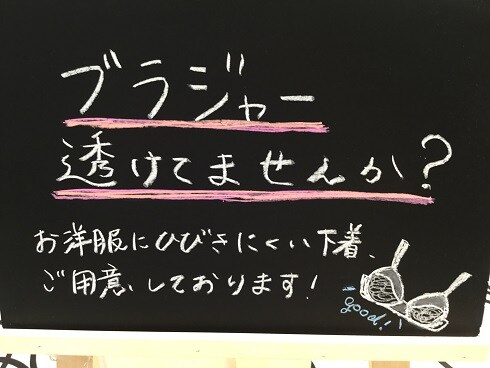 ブラジャー
透けてませんか?
お洋服にひびきにくい下着、
ご用意しております!
good!